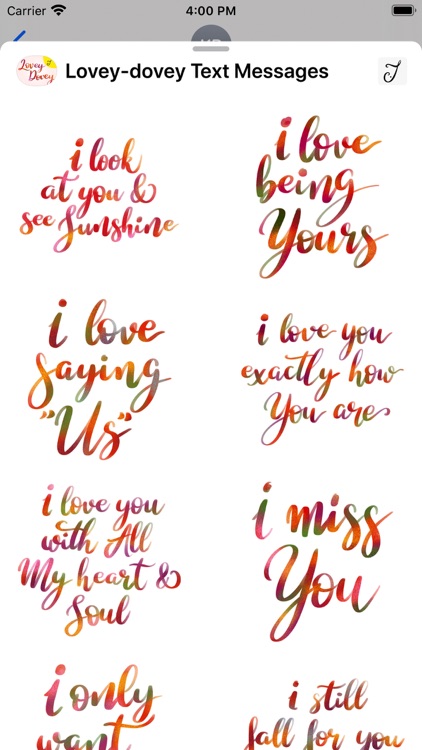 Carrier 4:00 PM
Lovey Dovey
Lovey-dovey Text Messages
i look
at you &
see Sunshine
i love
being
Yours
i love
saying
"Us"
i love you
exactly how
You are
i love you
with All
My heart &
Soul
i miss
You
i only
want
i still
fall for you